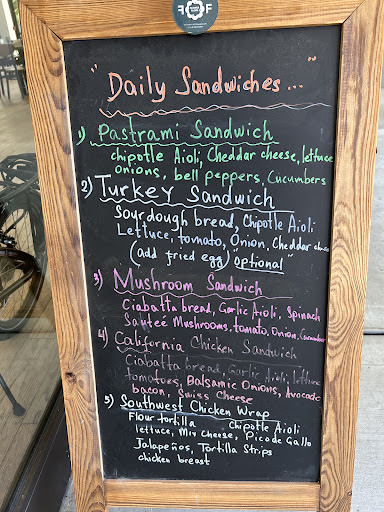 "Daily Sandwiches..."
1) Pastrami Sandwich
chipotle Aioli, Cheddar cheese, lettuce
onions, bell peppers, Cucumbers
2) Turkey Sandwich
Sourdough bread, Chipotle Aioli
Lettuce, tomato, Onion, Cheddar cheese
(add fried egg) "optional"
3) Mushroom Sandwich
Ciabatta bread, Garlic Aioli, Spinach
Sautee Mushrooms, tomato, Onion, Cucumber
4) California Chicken Sandwich
Ciabatta bread, Garlic Aioli, lettuce
tomatoes, Balsamic Onions, Avocado
bacon, Swiss Cheese
5) Southwest Chicken Wrap
Flour tortilla Chipotle Aioli
lettuce, Mix Cheese, Pico de Gallo
Jalapeños, Tortilla Strips
chicken breast